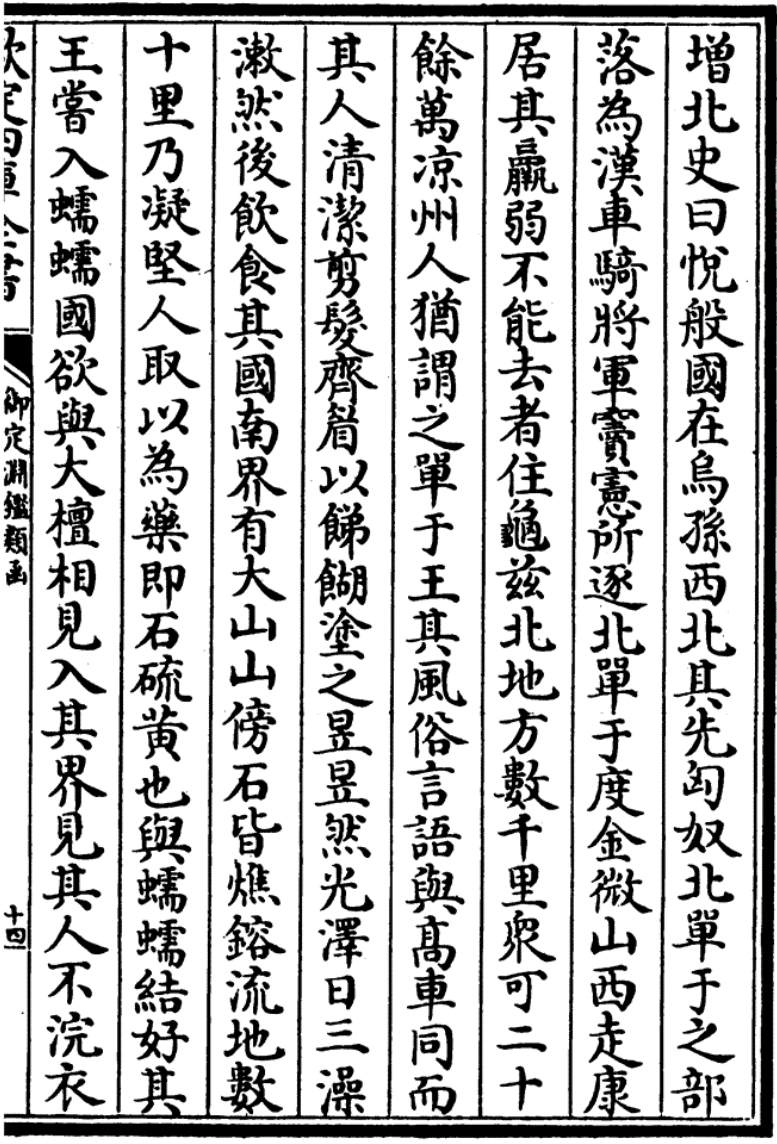 增北史曰悅般國在烏孫西北其先匈奴北單于之部
落為漢車騎將軍竇憲所逐北單于度金微山西走康
居其羸弱不能去者住龜兹北地方數千里衆可二十
餘萬凉州人猶謂之單于王其風俗言語與髙車同而
其人清潔剪髮齊眉以餙餬塗之昱昱然光澤日三澡
漱然後飲食其國南界有大山山傍石皆燋鎔流地數
十里乃凝堅人取以為藥即石硫黄也與蠕蠕結好其
王嘗入蠕蠕國欲與大檀相見入其界見其人不浣衣
欽定四庫全書
御定淵鑑類函
十四